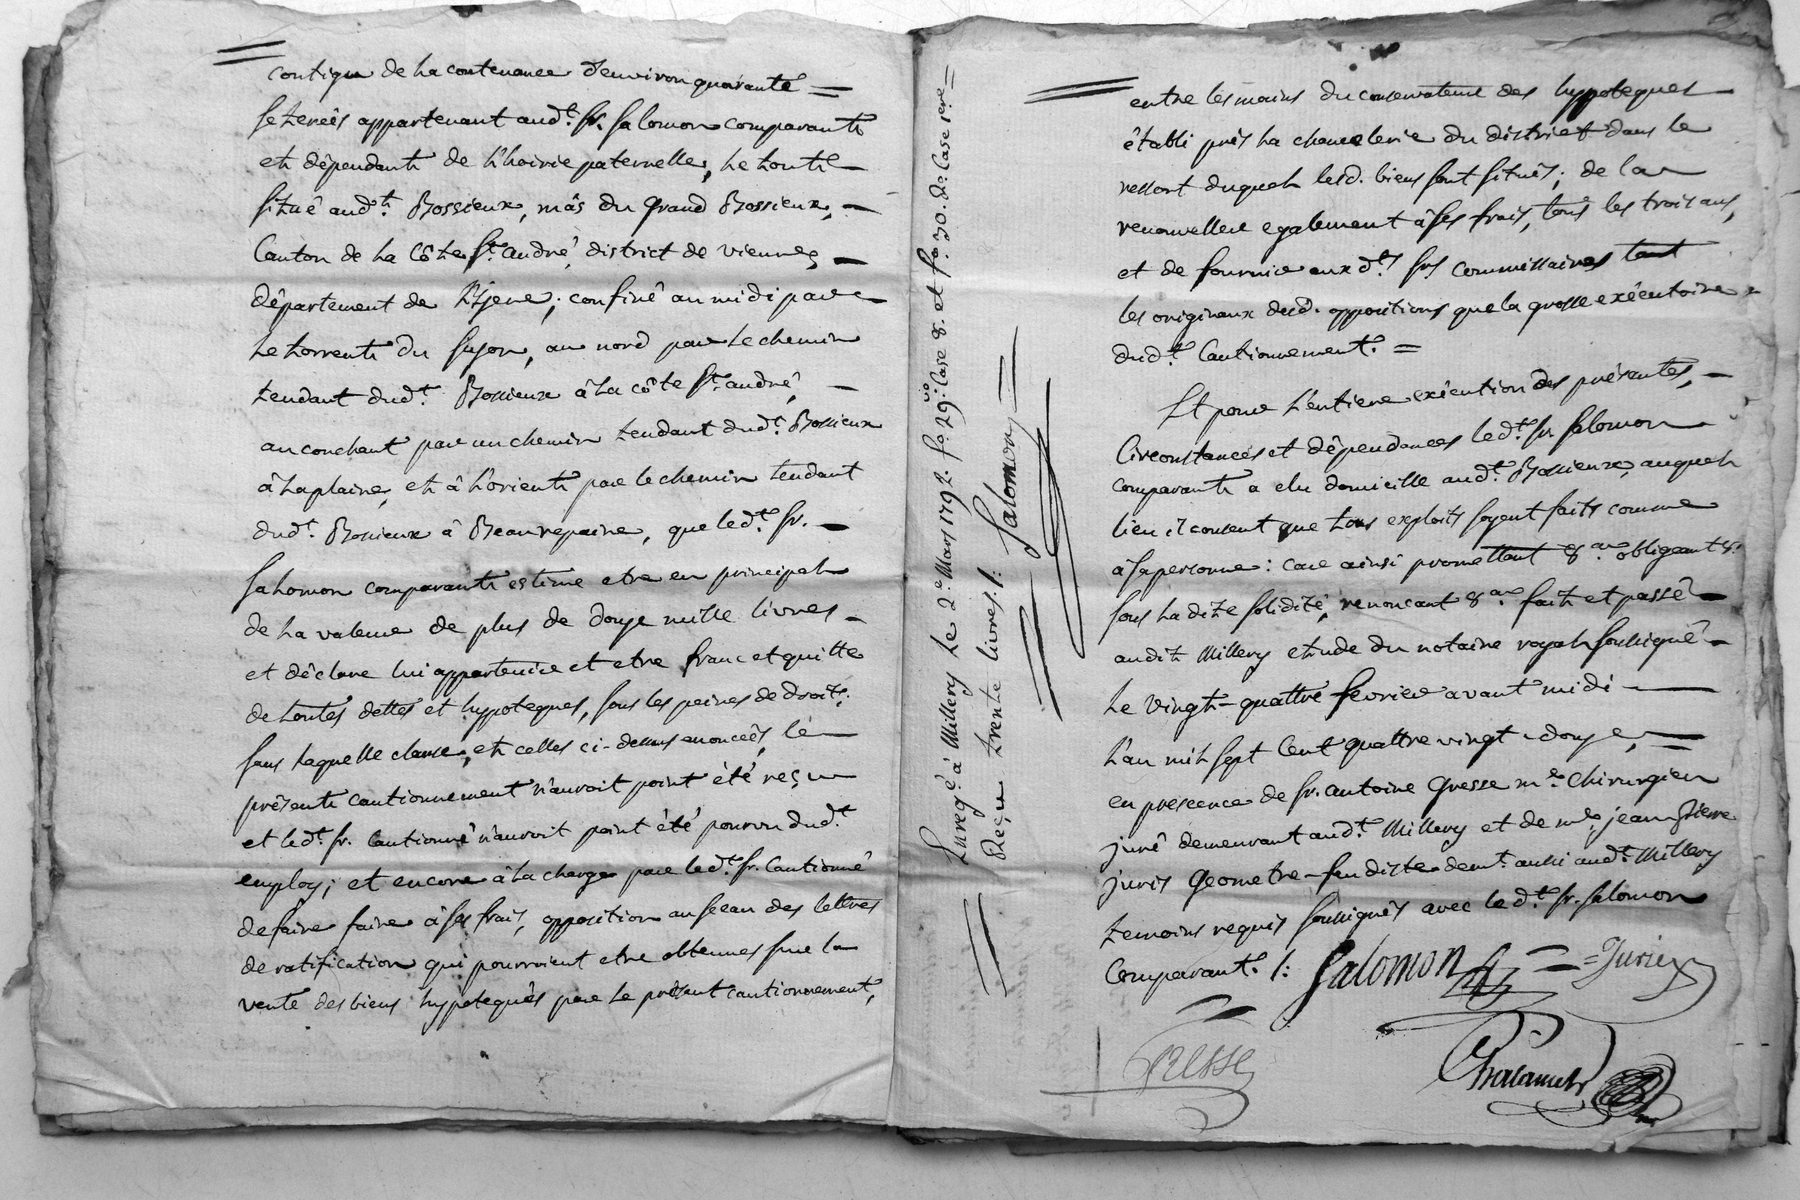 contigu de la contenance d'environ quarante =
seterêês appartenant aud.t sr. salomon comparant
et dépendant de l'hoirie paternelle, le tout
situé aud.t Bossieux, mâs du grand Bossieux,
Canton de la Côte st. andré, district de vienne,
département de l'Isere; confiné au midi par
le torrent du suzon, au nord par le chemin
tendant dud.t Bossieux à la côte st. andré,
au couchant par un chemin tendant dud.t Bossieux
à la plaine, et à l'orient par le chemin tendant
dud.t Bossieux à Beaurepaire, que led.t sr.
salomon comparant estime etre en principal
de la valeur de plus de douze mille livres
et déclare lui appartenir et etre franc et quitte
de toutes dettes et hypoteques, sous les peines de droit;
sans laquelle clause, et celles ci-dessus enoncées, le
présent cautionnement n'auroit point été reçu
et led.t sr. Cautionné n'auroit point été pourvu dud.t
employ; et encore à la charge par led.t sr. Cautionné
de faire faire à ses frais, opposition au sceau des lettres
de ratification qui pourroient etre obtenues sur la
vente des biens hypotequés par le présent cautionnement,
Enreg.é à Millery le 2.e Mars 1792. f.o 29. v.o Case 8. et f.o 30. d.o Case 1ere =
Reçu trente livres. /: Salomon
entre les mains du conservateur des hypoteques
établi près la chancelerie du district dans le
ressort duquel lesd. biens sont situés; de la
renouveller egalement à ses frais, tous les trois ans,
et de fournir aux d.ts srs commissaires tant
les originaux desd. oppositions que la grosse exécutoire
dud.t Cautionnement. =
Et pour l'entiere exécution des présentes,
Circonstances et dépendances led.t sr salomon
comparant a elu domicille aud.t Bossieux, auquel
lieu il consent que tous exploits soyent faits comme
à sa personne: car ainsi promettant &.a obligeant &.
sous la dite solidité, renoncant &.a fait et passé
audit Millery etude du notaire royal soussigné
le vingt-quattre fevrier avant midi
l'an mil sept Cent quattre vingt-douze, =
en presence de sr. antoine Gresse m.e Chirurgien
juré demeurant aud.t Millery et de m.e jean-Pierre
juris Geometre-feudiste dem.t aussi aud.t Millery
temoins requis soussignés avec led.t sr. salomon
Comparant. /: Salomon = Juris
Gresse